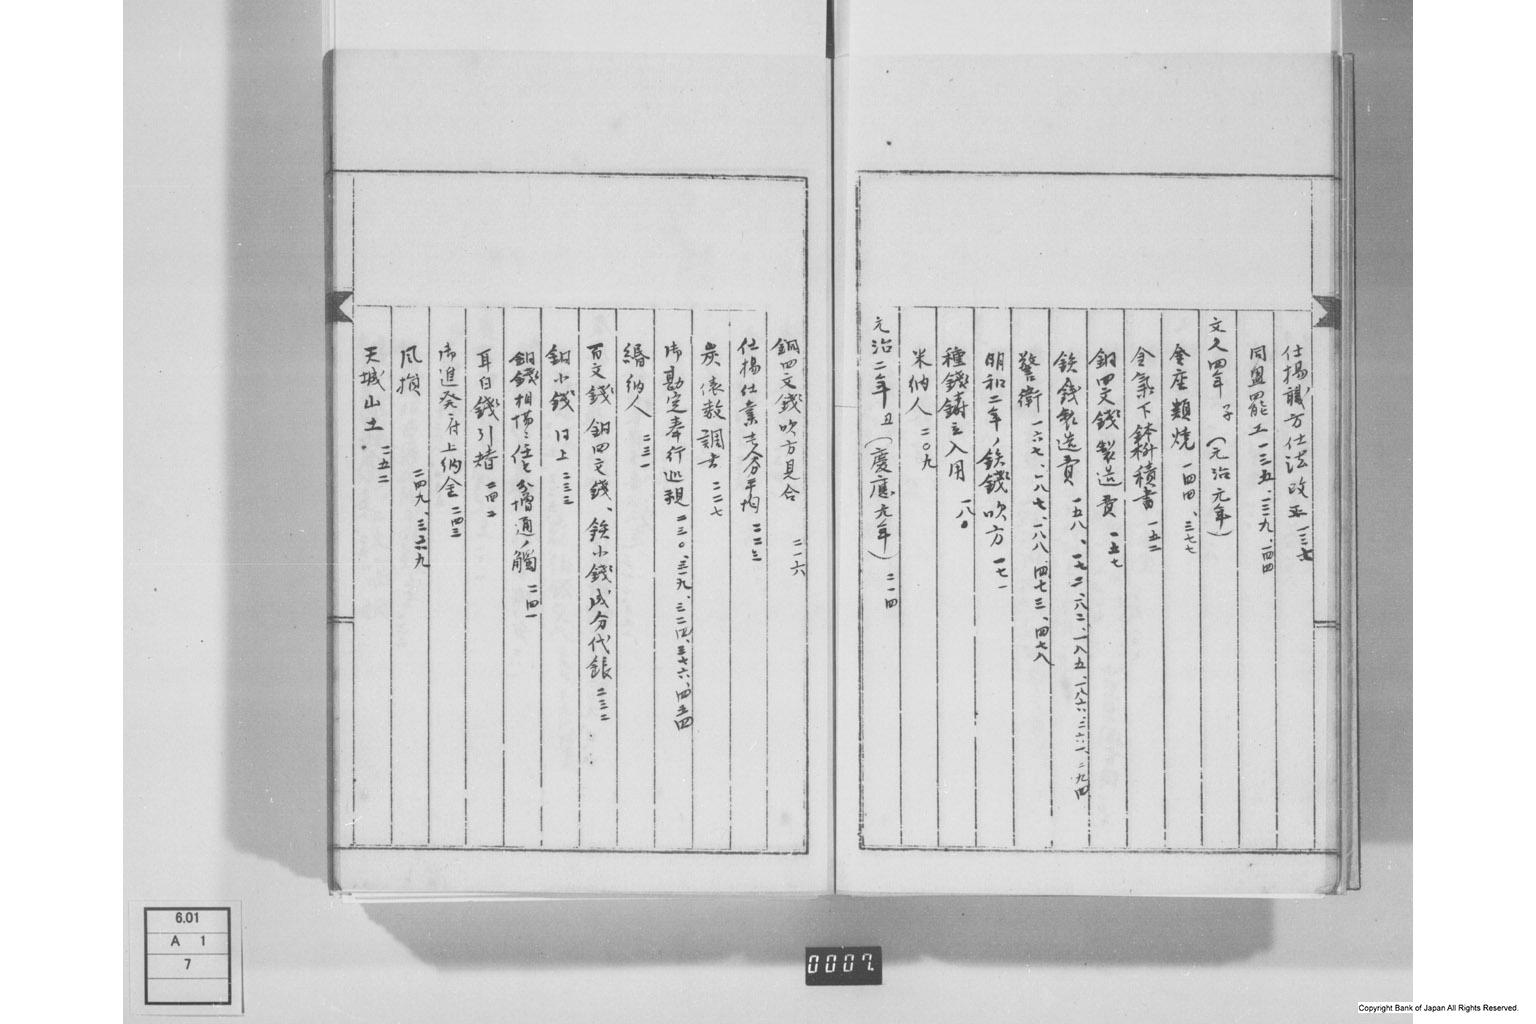 仕揚職方仕法改正 一三七
同盟罷工 一三五、一三九、一四四
文久四年 子 (元治元年)
金座類焼 一四四、三七七
吹方積書 一五二
銅四文錢製造費 一五七
鉄錢製造費 一五八、一七二、一八二、一八五、一八六、二六一、二九四
警衛 一六七、一八七、一八八、四七三、四七八
明和二年ノ鉄錢吹方 一七一
種錢鋳立入用 一八〇
米納人 二〇九
元治二年 丑 (慶應元年) 二一四
銅四文錢吹方見合 二一六
仕揚仕業歩合平均 二二三
炭俵数調書 二二七
御勘定奉行巡視 二三〇、三一九、三二四、三七六、四五四
緡納人 二三一
百文錢、銅四文錢、鉄小錢成分代銀 二三二
銅小錢 同上 二三三
銅錢相場ニ任セ歩増通ノ觸 二四一
耳白錢引替 二四二
御進発ニ付上納金 二四三
風損 二四九、三六九
天城山土 二五二
6.01
A 1
7
0007.
Copyright Bank of Japan All Rights Reserved.